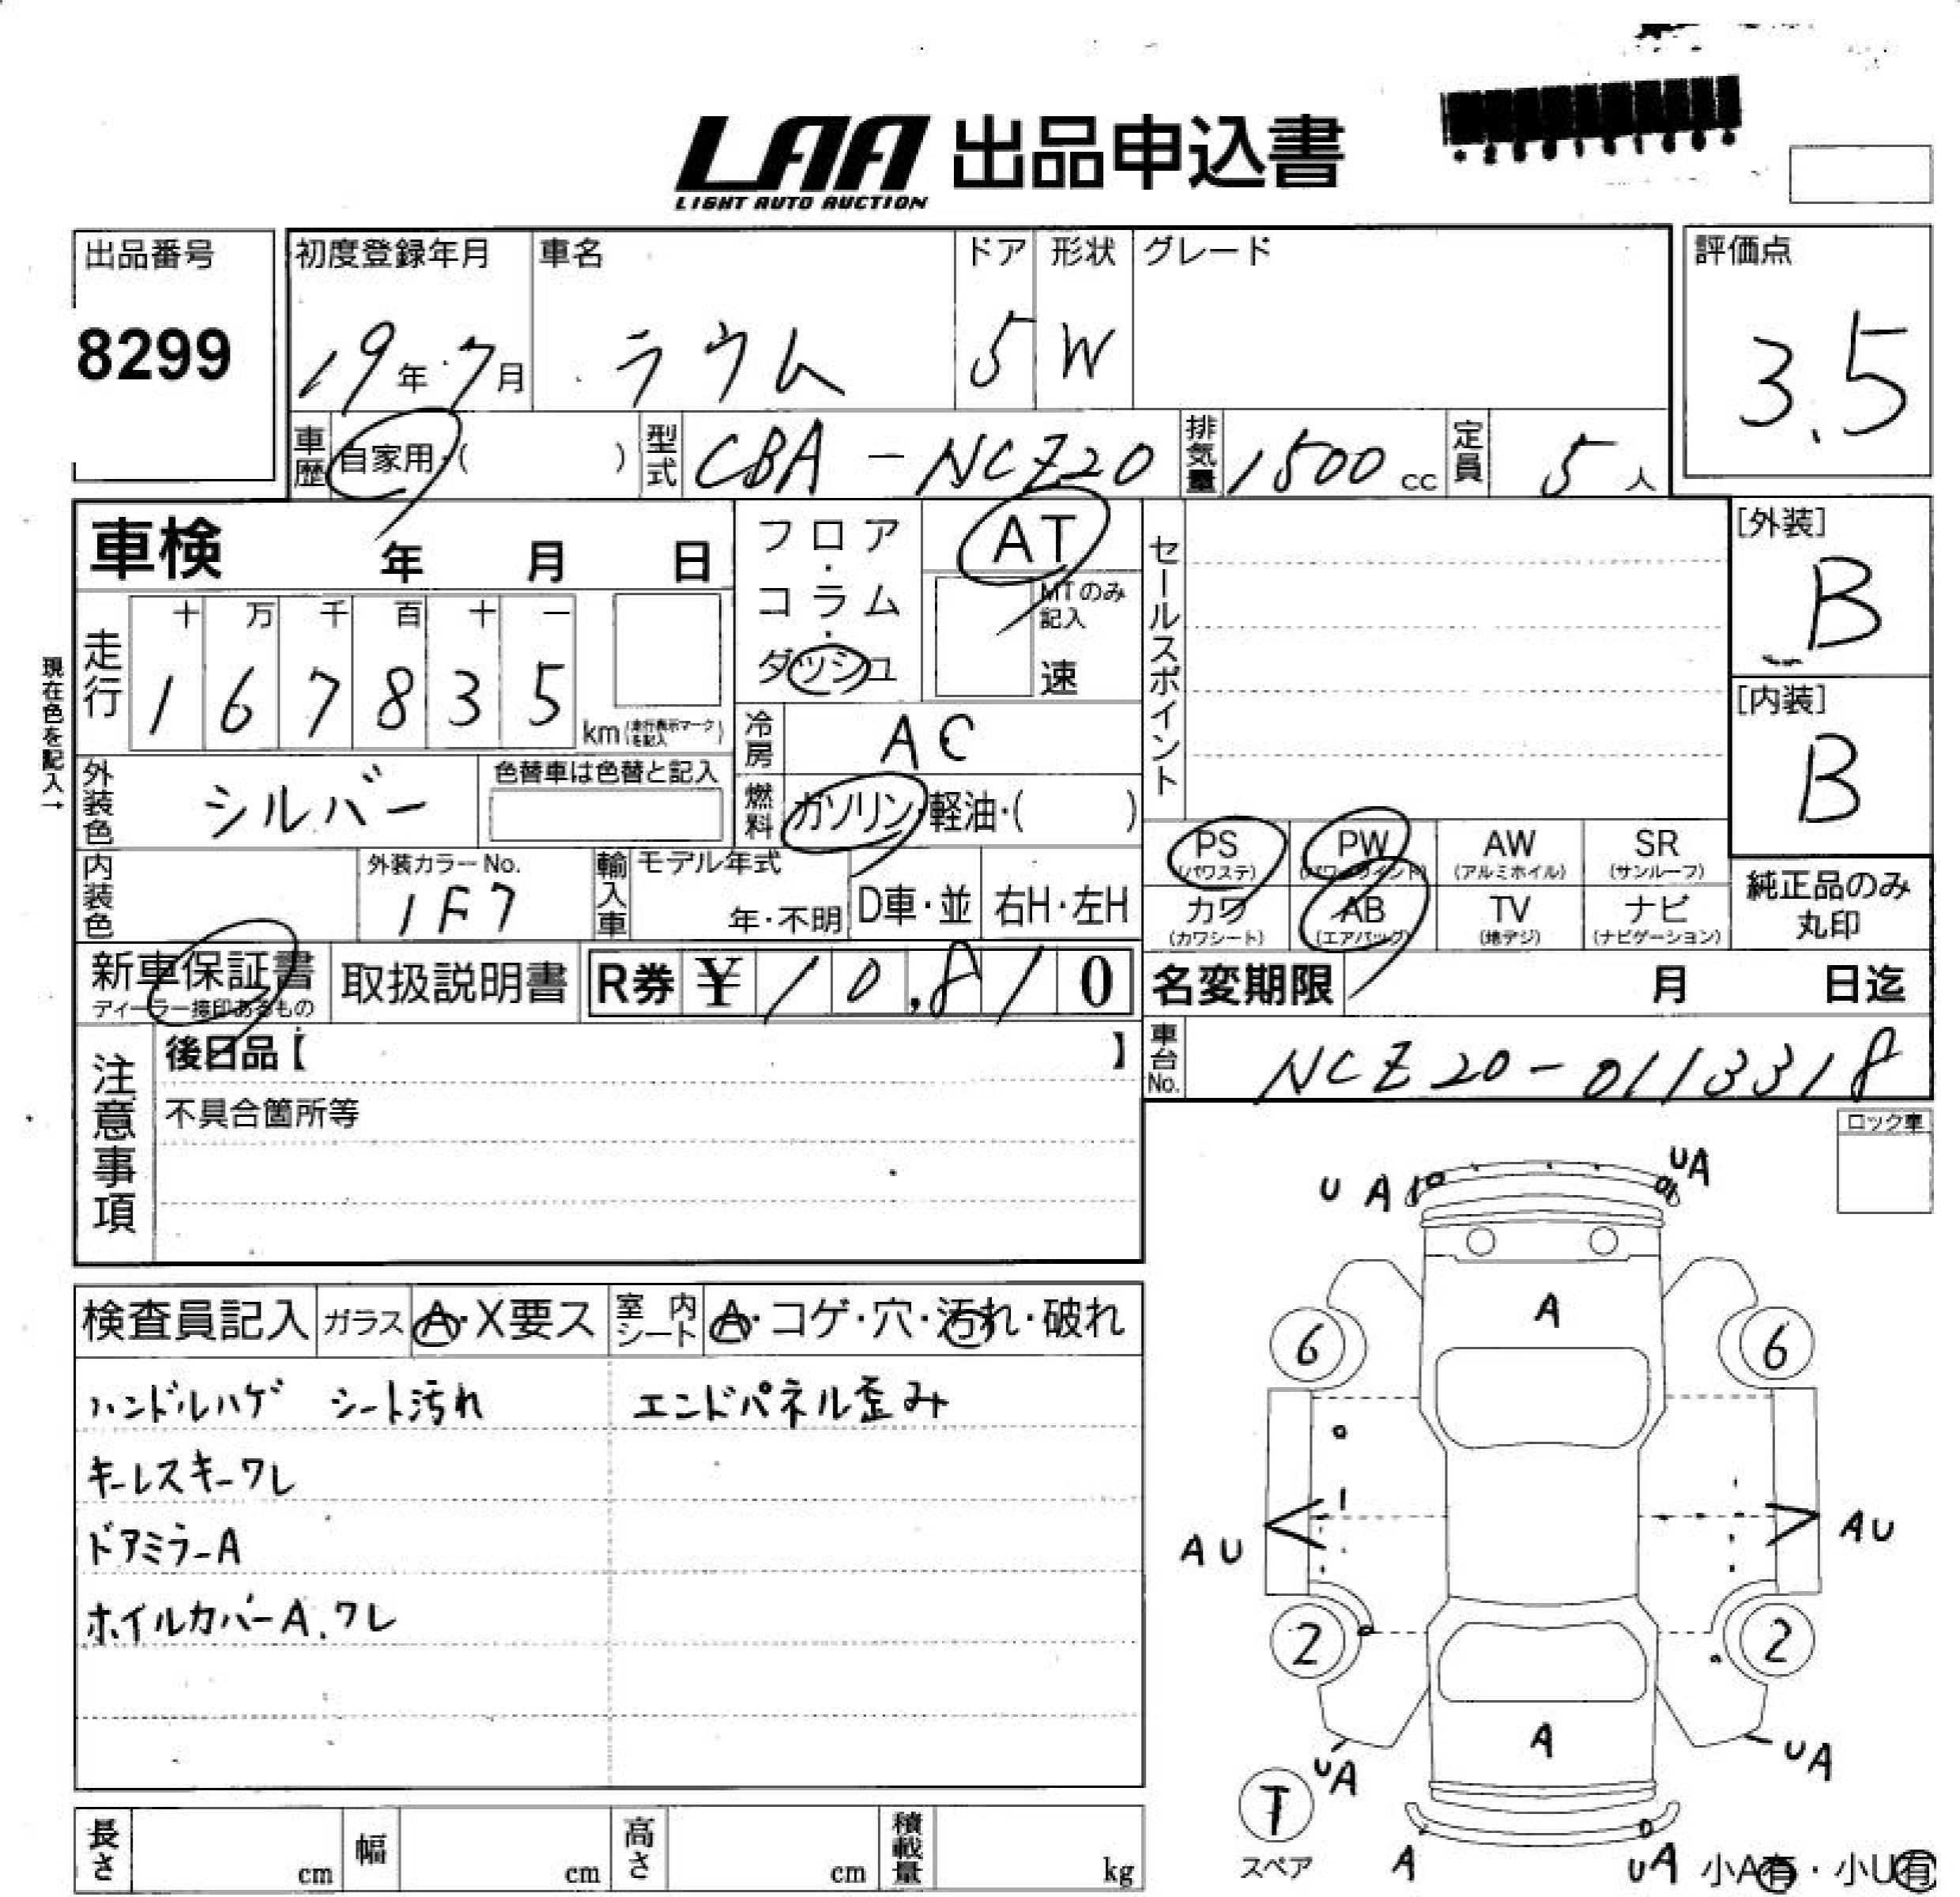 LAA 出品申込書
LIGHT AUTO AUCTION
出品番号
8299
初度登録年月
19年 7月
車名
ラウム
ドア
5
形状
W
グレード
評価点
3.5
車歴
自家用・( )
型式
CBA-NCZ20
排気量
1500cc
定員
5人
車検 年 月 日
フロア・コラム・ダッシュ
AT
MTのみ記入
速
セールスポイント
[外装]
B
[内装]
B
現在色を記入→
走行
十 万 千 百 十 一
1 6 7 8 3 5
km(走行表示マークを記入)
冷房
AC
外装色
シルバー
色替車は色替と記入
燃料
ガソリン・軽油・( )
内装色
外装カラーNo.
1F7
輸入車
モデル年式
年・不明
D車・並
右H・左H
PS
(パワステ)
PW
(パワーウインド)
AW
(アルミホイル)
SR
(サンルーフ)
カワ
(カワシート)
AB
(エアバッグ)
TV
(地デジ)
ナビ
(ナビゲーション)
純正品のみ
丸印
新車保証書
ディーラー捺印あるもの
取扱説明書
R券 ¥10,810
名変期限 月 日迄
注意事項
後日品【 】
不具合箇所等
車台No.
NCZ20-0113318
ロック車
検査員記入
ガラス
A・X要ス
室内シート
A・コゲ・穴・汚れ・破れ
ハンドルハゲ シート汚れ エンドパネル歪み
キーレスキーワレ
ドアミラーA
ホイルカバーA.ワレ
UA
UA
A
6
6
AU
AU
2
2
A
UA
UA
T
スペア
A
UA
小A有・小U有
長さ
cm
幅
cm
高さ
cm
積載量
kg